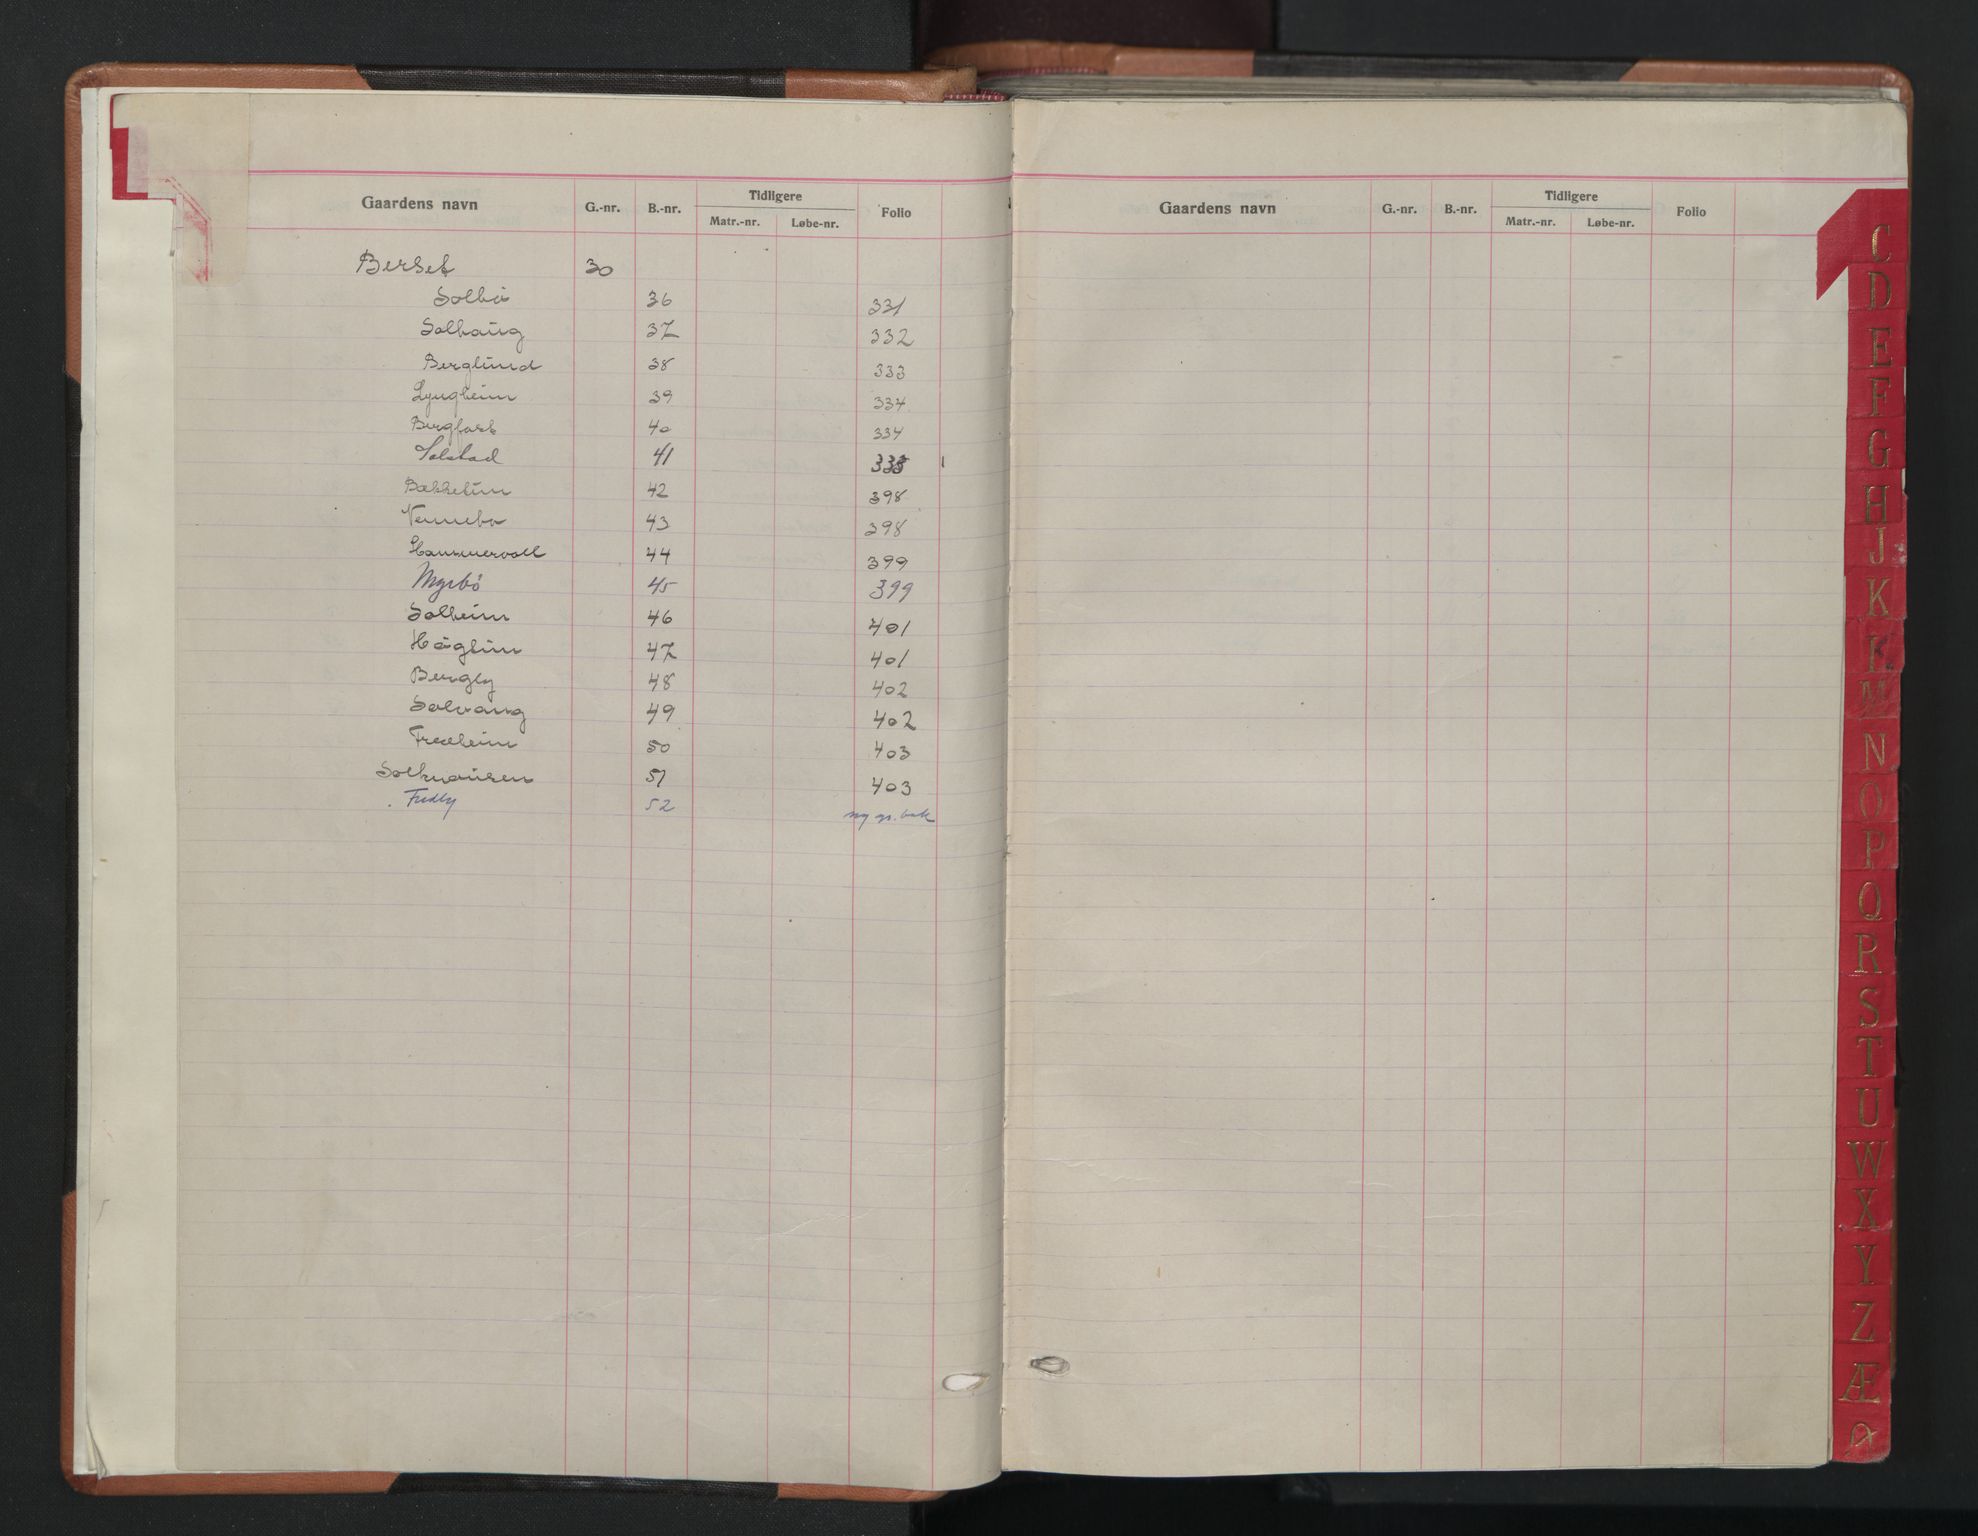 Gaardens navn G.-nr. B.-nr. Tidligere Matr.-nr. Løbe-nr. Folio
Berset 30
Solbø 36 331
Solhaug 37 332
Berglund 38 333
Lyngheim 39 334
Bergfast 40 334
Solstad 41 335
Bakkeheim 42 398
Vennebo 43 398
Hammervoll 44 399
Myrbø 45 399
Solheim 46 401
Haugheim 47 401
Bergly 48 402
Solvang 49 402
Fredheim 50 403
Solknausen 51 403
Fredly 52 ny gr. bok
Gaardens navn G.-nr. B.-nr. Tidligere Matr.-nr. Løbe-nr. Folio
C
D
E
F
G
H
J
K
L
M
N
O
P
Q
R
S
T
U
W
X
Y
Z
Æ
Ø